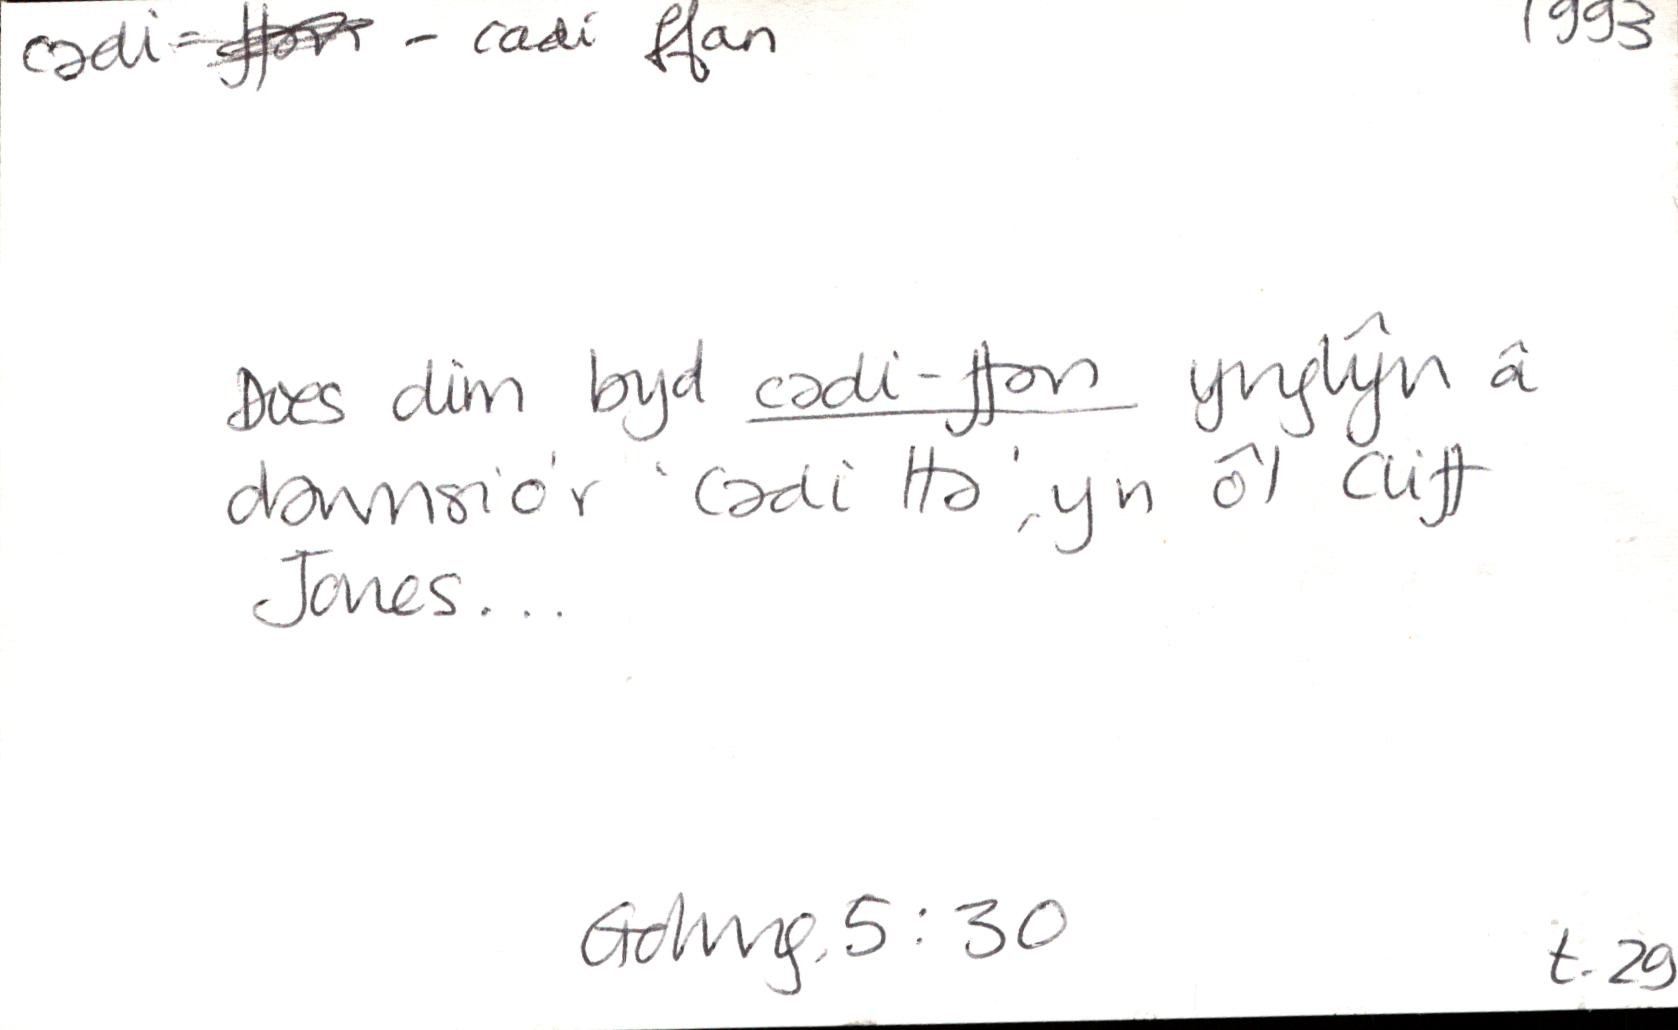 cadi- - cadi ffan
1993
Does dim byd cadi-ffan ynglŷn â
dawnsio'r 'Cadi Ha', yn ôl Cliff
Jones...
5:30
t. 29